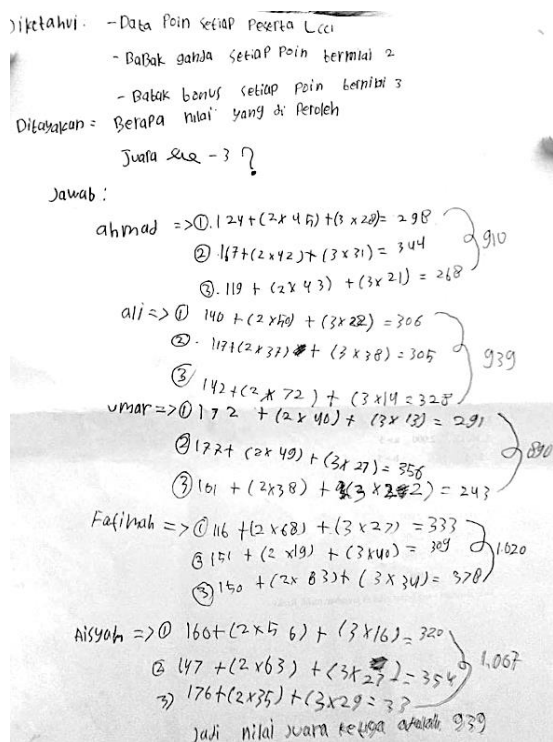 Diketahui. - Data Poin setiap peserta Lcci
- Babak ganda setiap poin bernilai 2
- Babak bonus setiap poin bernilai 3
Ditayakan = Berapa nilai yang di Peroleh
Juara ke - 3 ?
Jawab :
ahmad => ①. 124 + (2 x 45) + (3 x 28) = 298
② 167 + (2 x 42) + (3 x 31) = 344
③. 119 + (2 x 43) + (3 x 21) = 268
910
ali => ① 140 + (2 x 50) + (3 x 22) = 306
②. 117 + (2 x 37) + (3 x 38) = 305
③ 142 + (2 x 72) + (3 x 14 = 328
939
umar => ① 172 + (2 x 40) + (3 x 13) = 291
② 177 + (2 x 49) + (3 x 27) = 356
③ 101 + (2 x 38) + (3 x 22) = 243
890
Fatimah => ① 116 + (2 x 68) + (3 x 27) = 333
③ 151 + (2 x 19) + (3 x 40) = 309
③ 150 + (2 x 63) + (3 x 34) = 378
1.020
Aisyah => ① 160 + (2 x 56) + (3 x 16) = 320
② 147 + (2 x 63) + (3 x 27) = 354
3) 176 + (2 x 35) + (3 x 29 = 33
1,067
Jadi nilai juara ketiga adalah 939